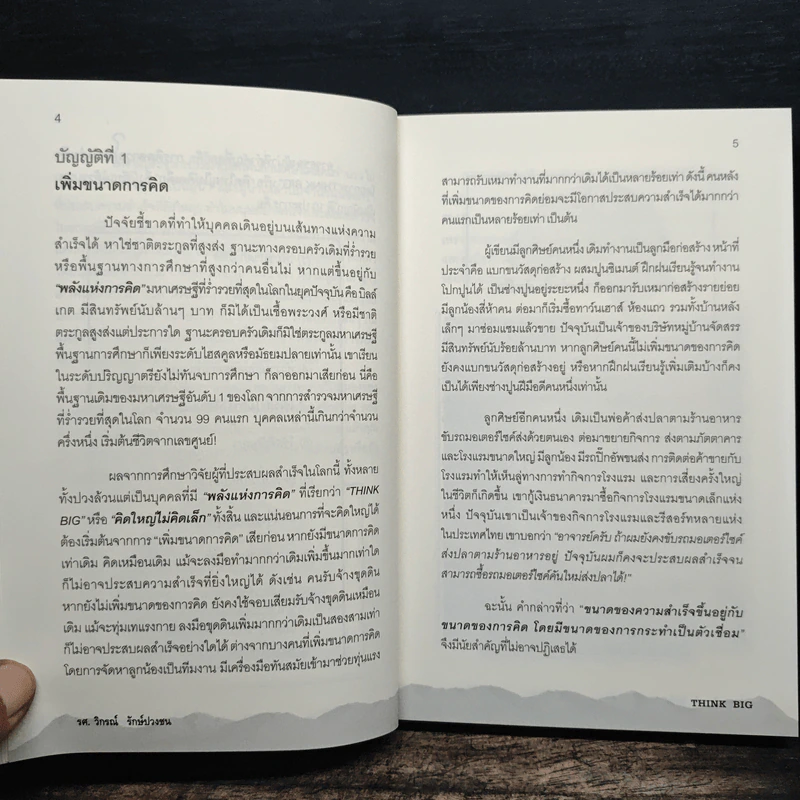 4
บัญญัติที่ 1
เพิ่มขนาดการคิด
ปัจจัยชี้ขาดที่ทำให้บุคคลเดินอยู่บนเส้นทางแห่งความ
สำเร็จได้ หาใช่ชาติตระกูลที่สูงส่ง ฐานะทางครอบครัวเดิมที่ร่ำรวย
หรือพื้นฐานทางการศึกษาที่สูงกว่าคนอื่นไม่ หากแต่ขึ้นอยู่กับ
“พลังแห่งการคิด” มหาเศรษฐีที่ร่ำรวยที่สุดในโลกในยุคปัจจุบัน คือ บิลล์
เกต มีสินทรัพย์นับล้านๆ บาท ก็มิได้เป็นเชื้อพระวงศ์ หรือมีชาติ
ตระกูลสูงส่งแต่ประการใด ฐานะครอบครัวเดิมก็มิใช่ตระกูลมหาเศรษฐี
พื้นฐานการศึกษาก็เพียงระดับไฮสคูลหรือมัธยมปลายเท่านั้น เขาเรียน
ในระดับปริญญาตรียังไม่ทันจบการศึกษา ก็ลาออกมาเสียก่อน นี่คือ
พื้นฐานเดิมของมหาเศรษฐีอันดับ 1 ของโลก จากการสำรวจมหาเศรษฐี
ที่ร่ำรวยที่สุดในโลก จำนวน 99 คนแรก บุคคลเหล่านี้เกินกว่าจำนวน
ครึ่งหนึ่ง เริ่มต้นชีวิตจากเลขศูนย์!
ผลจากการศึกษาวิจัยผู้ที่ประสบผลสำเร็จในโลกนี้ ทั้งหลาย
ทั้งปวงล้วนแต่เป็นบุคคลที่มี “พลังแห่งการคิด” ที่เรียกว่า “THINK
BIG” หรือ “คิดใหญ่ไม่คิดเล็ก” ทั้งสิ้น และแน่นอนการที่จะคิดใหญ่ได้
ต้องเริ่มต้นจากการ “เพิ่มขนาดการคิด” เสียก่อน หากยังมีขนาดการคิด
เท่าเดิม คิดเหมือนเดิม แม้จะลงมือทำมากกว่าเดิมเพิ่มขึ้นมากเท่าใด
ก็ไม่อาจประสบความสำเร็จที่ยิ่งใหญ่ได้ ดังเช่น คนรับจ้างขุดดิน
หากยังไม่เพิ่มขนาดของการคิด ยังคงใช้จอบเสียมรับจ้างขุดดินเหมือน
เดิม แม้จะทุ่มเทแรงกาย ลงมือขุดดินเพิ่มมากกว่าเดิมเป็นสองสามเท่า
ก็ไม่อาจประสบผลสำเร็จอย่างใดได้ ต่างจากบางคนที่เพิ่มขนาดการคิด
โดยการจัดหาลูกน้องเป็นทีมงาน มีเครื่องมือทันสมัยเข้ามาช่วยทุ่นแรง
รศ. วิกรณ์ รักษ์ปวงชน
5
สามารถรับเหมาทำงานที่มากกว่าเดิมได้เป็นหลายร้อยเท่า ดังนี้ คนหลัง
ที่เพิ่มขนาดของการคิดย่อมจะมีโอกาสประสบความสำเร็จได้มากกว่า
คนแรกเป็นหลายร้อยเท่า เป็นต้น
ผู้เขียนมีลูกศิษย์คนหนึ่ง เดิมทำงานเป็นลูกมือก่อสร้าง หน้าที่
ประจำคือ แบกขนวัสดุก่อสร้าง ผสมปูนซิเมนต์ ฝึกฝนเรียนรู้จนทำงาน
โปกปูนได้ เป็นช่างปูนอยู่ระยะหนึ่ง ก็ออกมารับเหมาก่อสร้างรายย่อย
มีลูกน้องสี่ห้าคน ต่อมาก็เริ่มซื้อทาว์นเฮาส์ ห้องแถว รวมทั้งบ้านหลัง
เล็กๆ มาซ่อมแซมแล้วขาย ปัจจุบันเป็นเจ้าของบริษัทหมู่บ้านจัดสรร
มีสินทรัพย์นับร้อยล้านบาท หากลูกศิษย์คนนี้ไม่เพิ่มขนาดของการคิด
ยังคงแบกขนวัสดุก่อสร้างอยู่ หรือหากฝึกฝนเรียนรู้เพิ่มเติมบ้างก็คง
เป็นได้เพียงช่างปูนฝีมือดีคนหนึ่งเท่านั้น
ลูกศิษย์อีกคนหนึ่ง เดิมเป็นพ่อค้าส่งปลาตามร้านอาหาร
ขับรถมอเตอร์ไซค์ส่งด้วยตนเอง ต่อมาขยายกิจการ ส่งตามภัตตาคาร
และโรงแรมขนาดใหญ่ มีลูกน้อง มีรถปิ๊กอัพขนส่ง การติดต่อค้าขายกับ
โรงแรมทำให้เห็นลู่ทางการทำกิจการโรงแรม และการเสี่ยงครั้งใหญ่
ในชีวิตก็เกิดขึ้น เขากู้เงินธนาคารมาซื้อกิจการโรงแรมขนาดเล็กแห่ง
หนึ่ง ปัจจุบันเขาเป็นเจ้าของกิจการโรงแรมและรีสอร์ทหลายแห่ง
ในประเทศไทย เขาบอกว่า “อาจารย์ครับ ถ้าผมยังคงขับรถมอเตอร์ไซค์
ส่งปลาตามร้านอาหารอยู่ ปัจจุบันผมก็คงจะประสบผลสำเร็จจน
สามารถซื้อรถมอเตอร์ไซค์คันใหม่ส่งปลาได้!”
ฉะนั้น คำกล่าวที่ว่า “ขนาดของความสำเร็จขึ้นอยู่กับ
ขนาดของการคิด โดยมีขนาดของการกระทำเป็นตัวเชื่อม”
จึงมีนัยสำคัญที่ไม่อาจปฏิเสธได้
THINK BIG